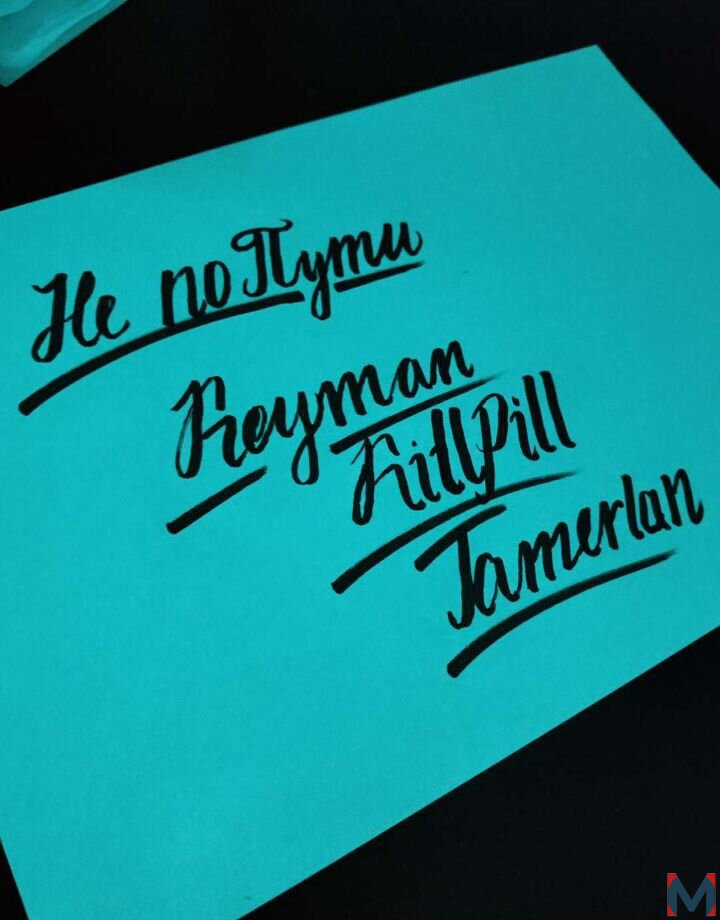 Не по Пути
Keyman
KillPill
Tamerlan
M